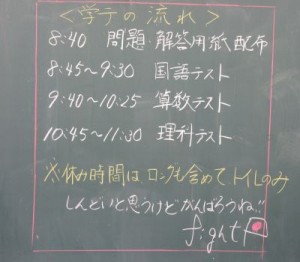 <学テの流れ>
8:40 問題・解答用紙配布
8:45~9:30 国語テスト
9:40~10:25 算数テスト
10:45~11:30 理科テスト
※休み時間はロングも含めてトイレのみ
しんどいと思うけどがんばろうね!!
fight